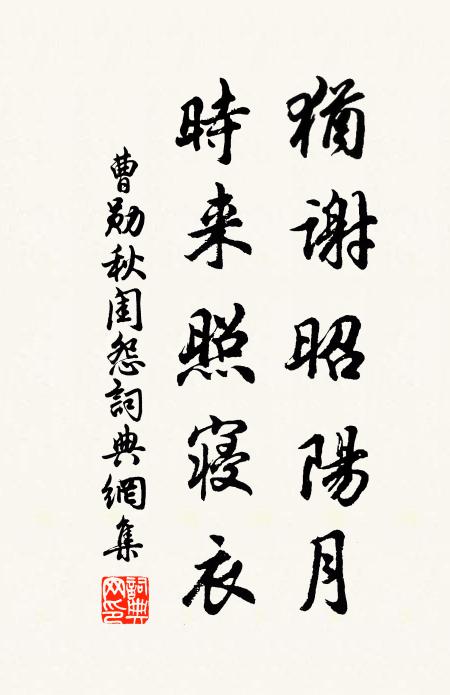 猶謝昭陽月
時来照寝衣
曹勛秋閨怨詞典網集
詞典
网印